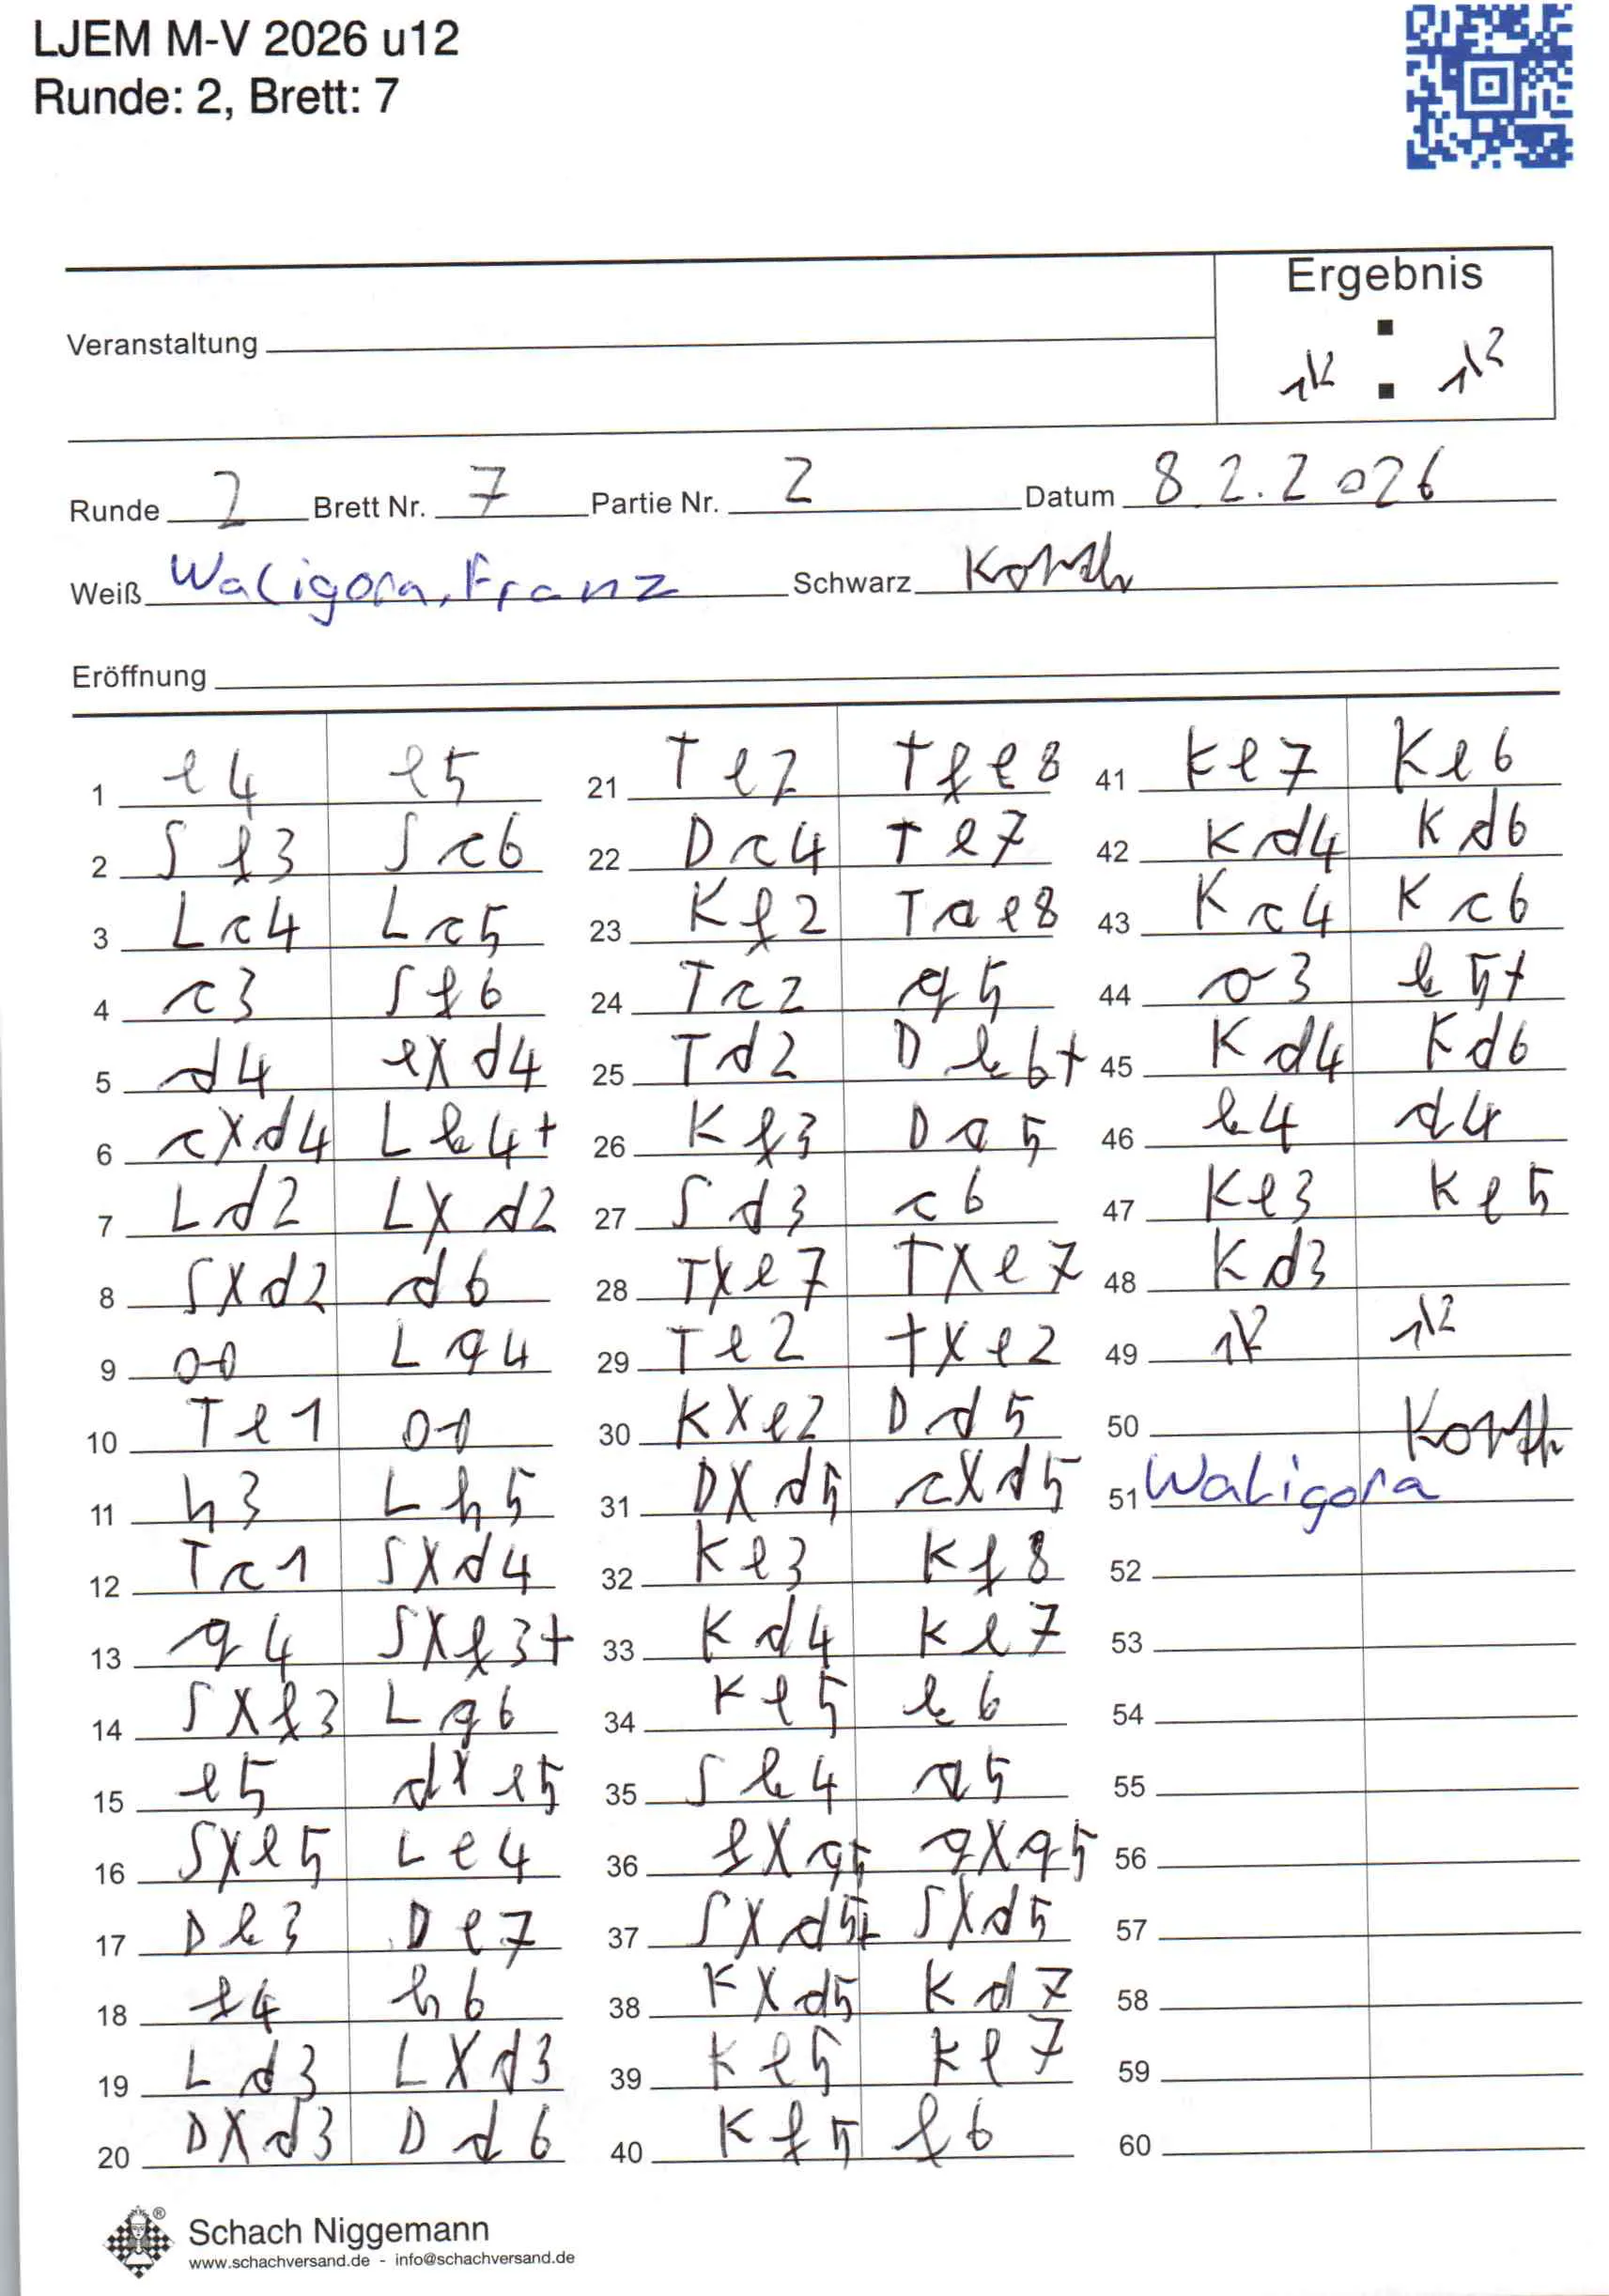 LJEM M-V 2026 u12
Runde: 2, Brett: 7
Ergebnis
Veranstaltung
1\2 : 1\2
Runde 2 Brett Nr. 7 Partie Nr. 2 Datum 8.2.2026
Weiß Waligora, Franz Schwarz Korth
Eröffnung
1 e4 e5 21 Te2 Tfe8 41 Ke7 Ke6
2 Sf3 Sc6 22 Dc4 Te7 42 Kd4 Kd6
3 Lc4 Lc5 23 Kf2 Tae8 43 Kc4 Kc6
4 c3 Sf6 24 Tc2 g5 44 a3 b5+
5 d4 exd4 25 Td2 Db6+ 45 Kd4 Kd6
6 cxd4 Lb4+ 26 Kf3 Da5 46 b4 d4
7 Ld2 Lxd2 27 Sd3 c6 47 Ke3 Ke5
8 Sxd2 d6 28 Txe7 Txe7 48 Kd3
9 0-0 Lg4 29 Te2 Txe2 49 1\2 1\2
10 Te1 0-0 30 Kxe2 Dd5 50 Korth
11 h3 Lh5 31 Dxd5 cxd5 51 Waligora
12 Tc1 Sxd4 32 Ke3 Kf8 52
13 g4 Sxf3+ 33 Kd4 Ke7 53
14 Sxf3 Lg6 34 Ke5 b6 54
15 e5 dxe5 35 Sb4 a5 55
16 Sxe5 Le4 36 fxg5 gxg5 56
17 Db3 De7 37 Sxd5+ Sxd5 57
18 f4 h6 38 Kxd5 Kd7 58
19 Ld3 Lxd3 39 Ke5 Ke7 59
20 Dxd3 Dd6 40 Kf5 f6 60
Schach Niggemann
www.schachversand.de - info@schachversand.de